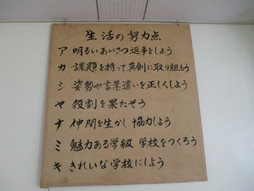 生活の努力点
ア 明るいあいさつ返事をしよう
カ 課題を持って真剣に取り組もう
シ 姿勢や言葉遣いを正しくしよう
ヤ 役割を果たそう
ナ 仲間を生かし協力しよう
ミ 魅力ある学級 学校をつくろう
キ きれいな学校にしよう